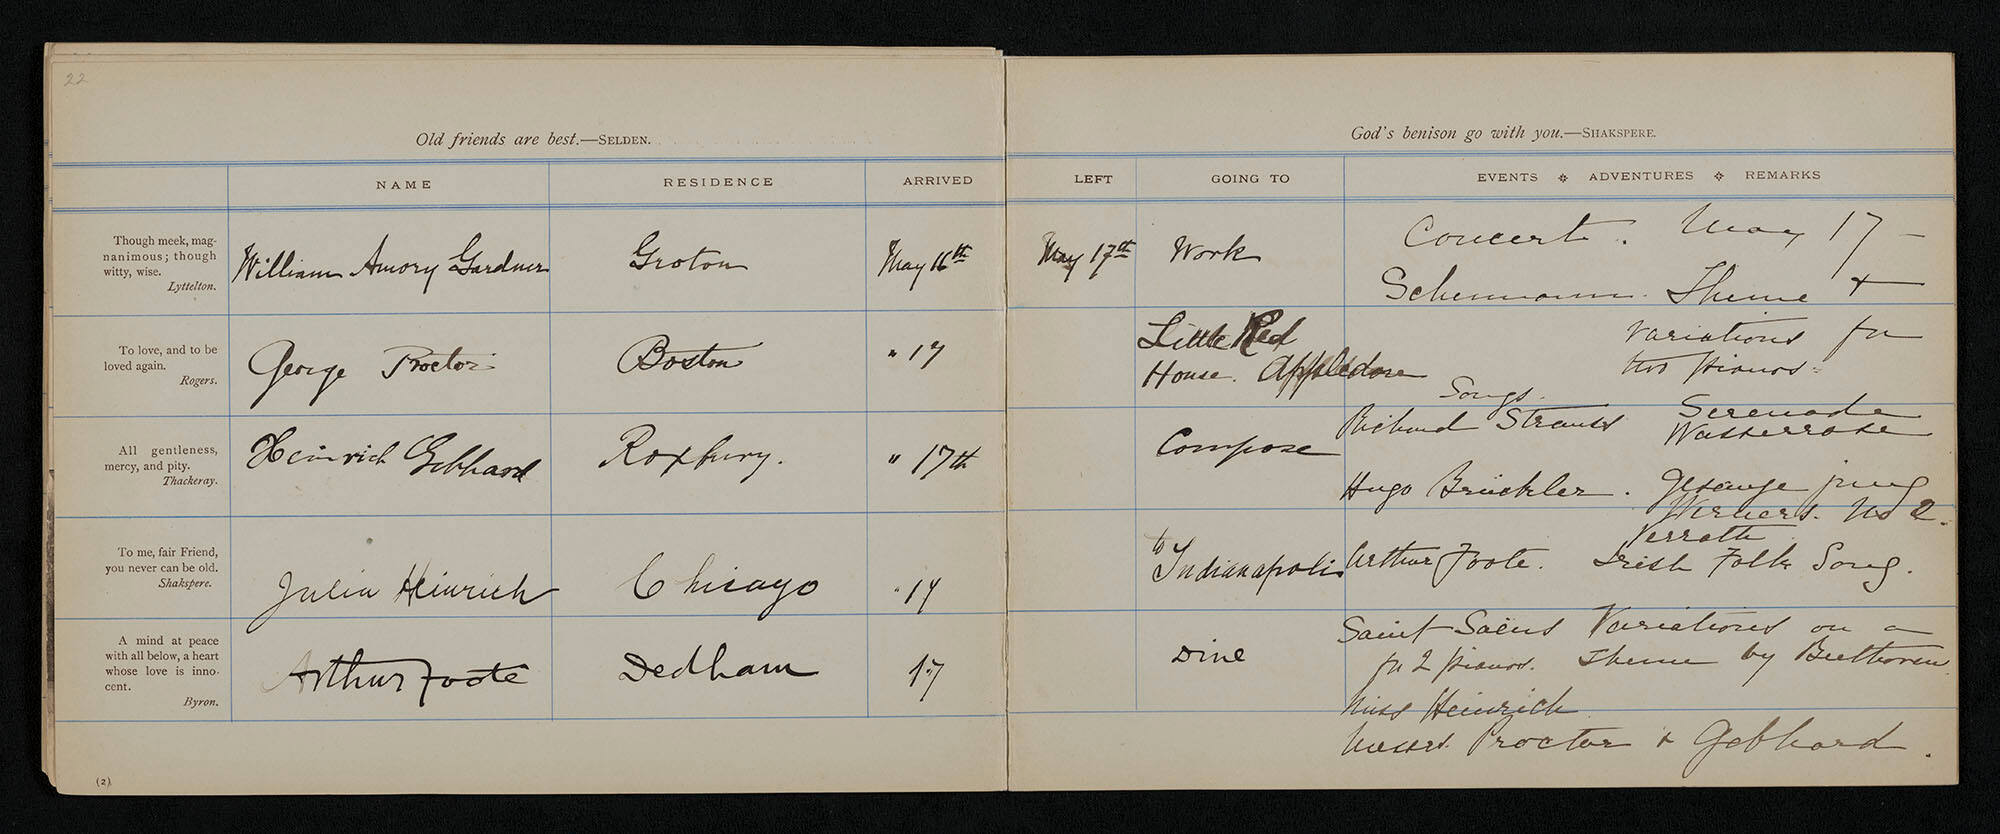 22
Old friends are best.—SELDEN.
NAME RESIDENCE ARRIVED
Though meek, mag-
nanimous; though
witty, wise.
Lyttelton.
William Amory Gardner Groton May 16th
To love, and to be
loved again.
Rogers.
George Proctor Boston " 17
All gentleness,
mercy, and pity.
Thackeray.
Heinrich Gebhard Roxbury. " 17th
To me, fair Friend,
you never can be old.
Shakspere.
Julia Heinrich Chicago " 17
A mind at peace
with all below, a heart
whose love is inno-
cent.
Byron.
Arthur Foote Dedham 17
(2)
God's benison go with you.—SHAKSPERE.
LEFT GOING TO EVENTS ADVENTURES REMARKS
May 17th Work
Little Red
House. Appledore
Compose
to
Indianapolis
Dine
Concert. May 17 -
Schumann. Theme +
Variations for
two pianos.
Songs.
Richard Strauss Serenade
Wasserrose
Hugo Brückler. Gesänge jung
Werners. No 2.
Arthur Foote. Irish Folk Song.
Saint-Saëns Variations on a
for 2 pianos. Theme by Beethoven.
Miss Heinrich
Messrs. Proctor + Gebhard.